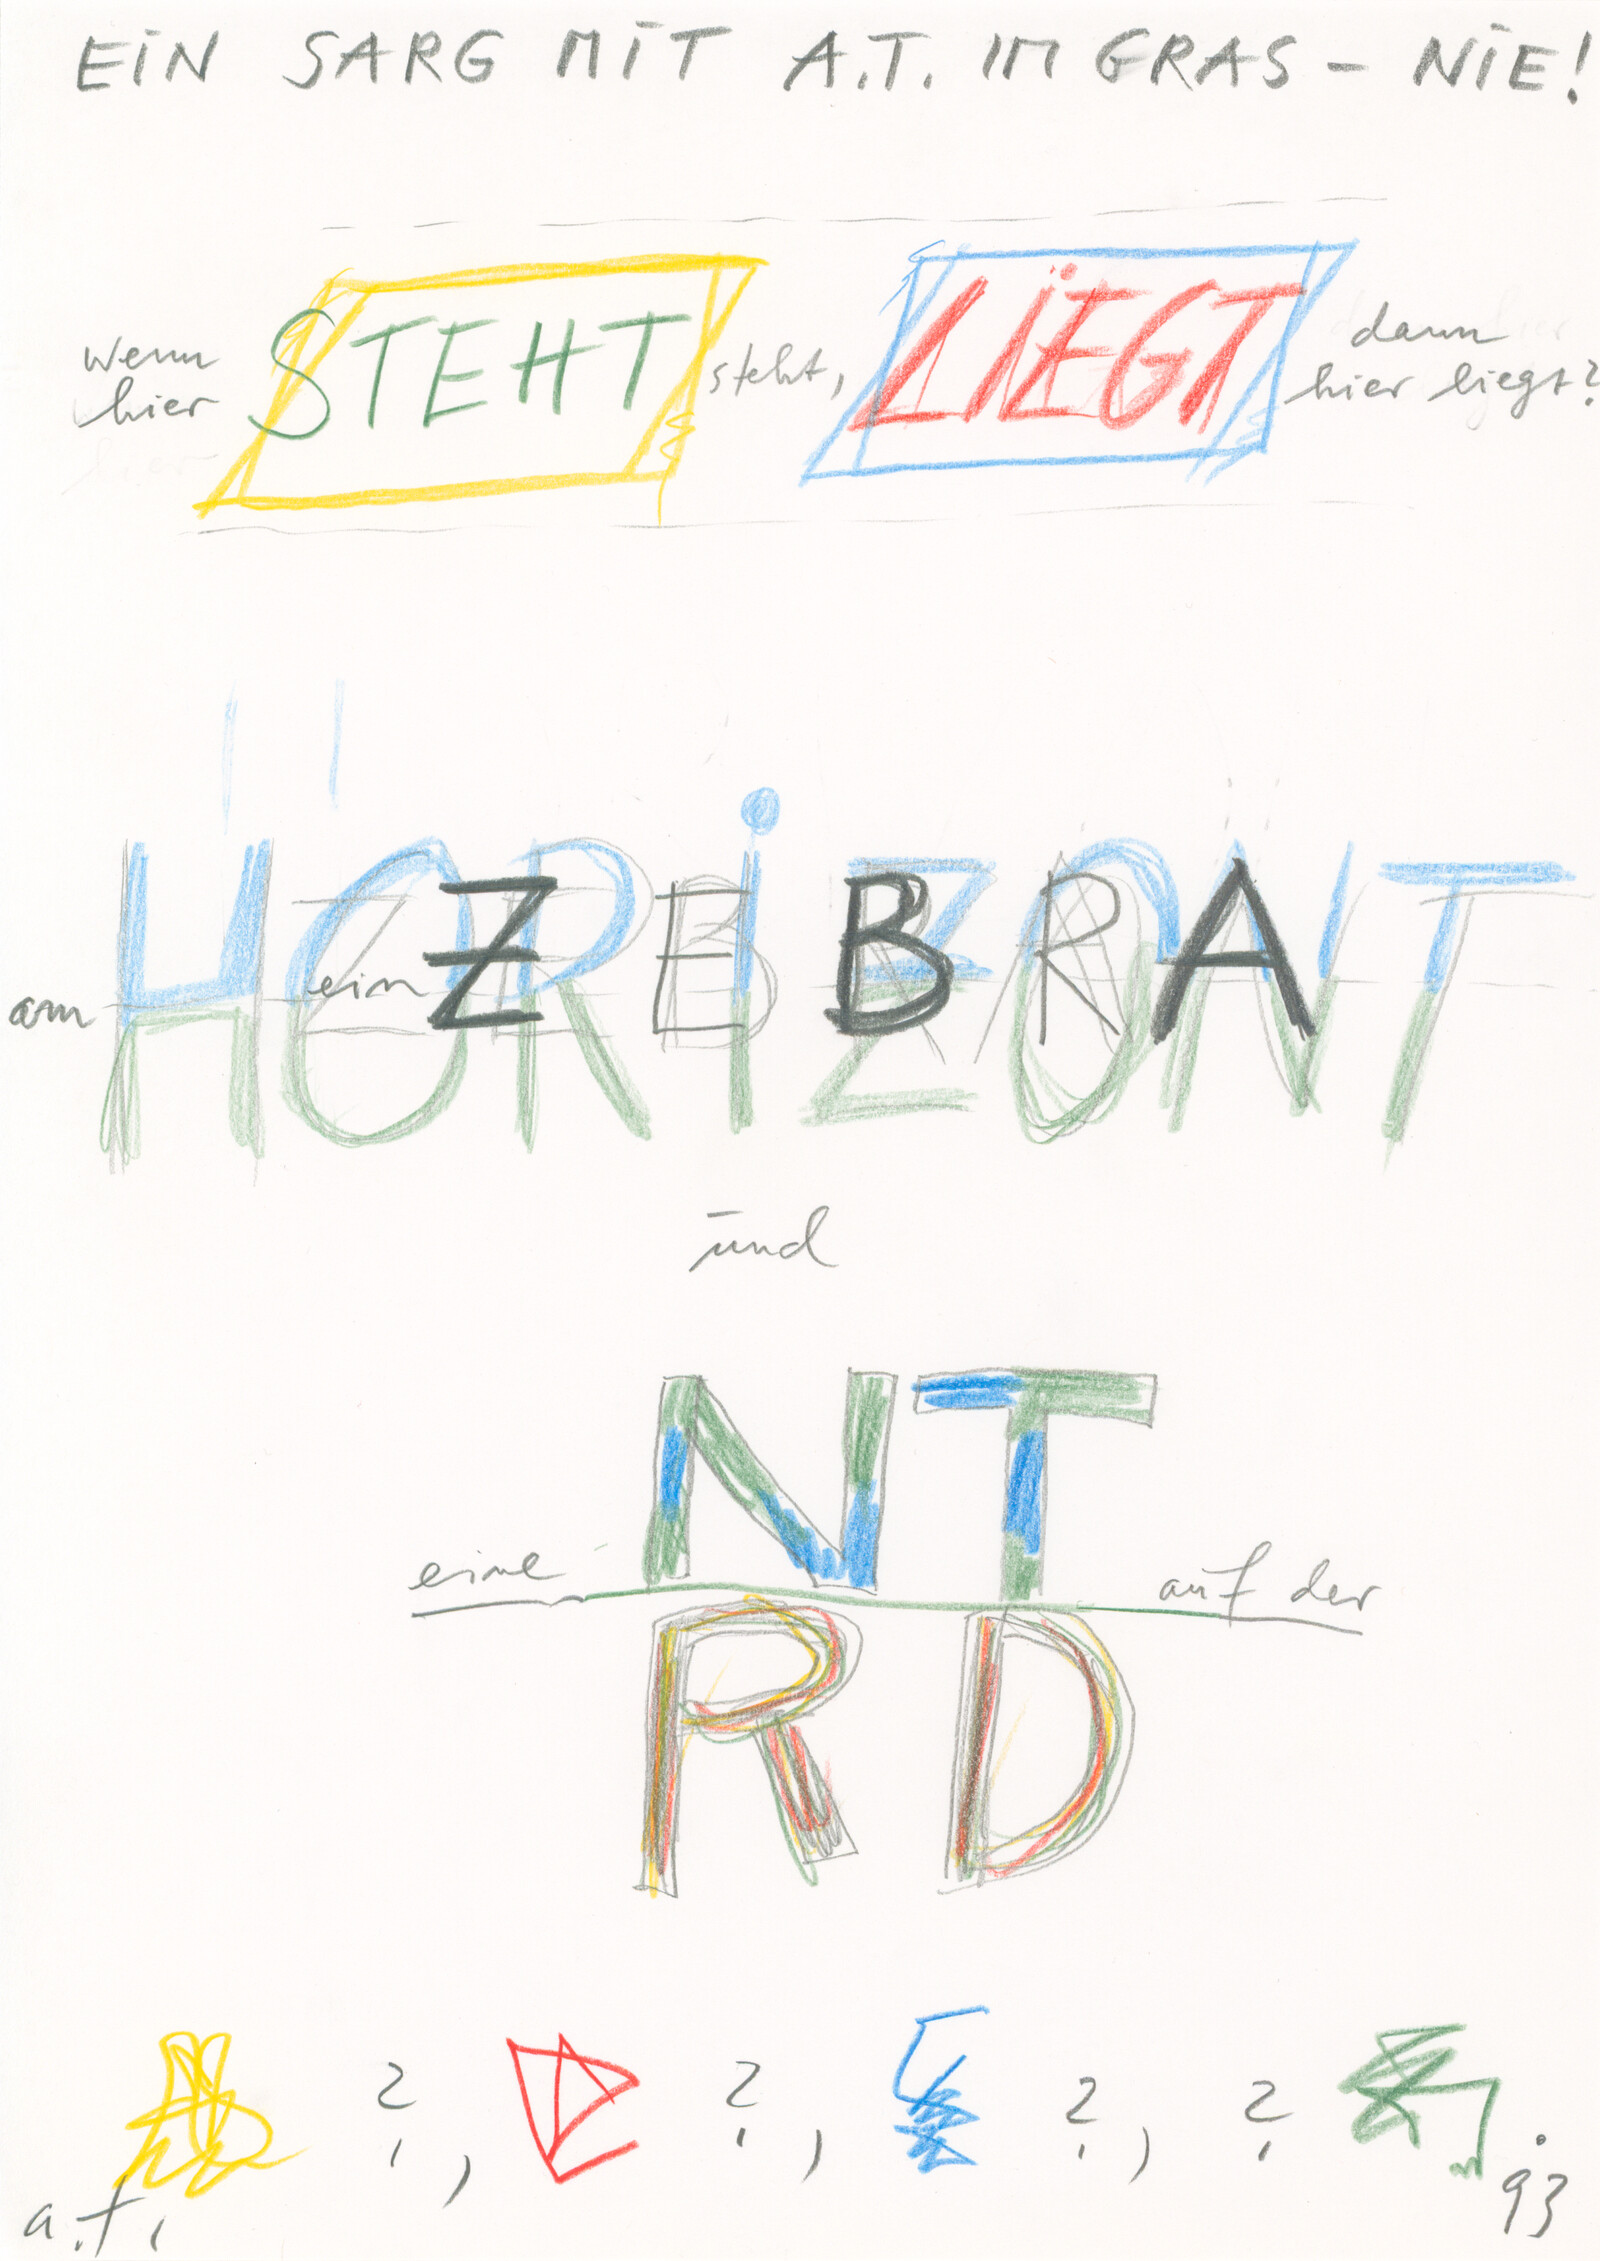 EiN SARG MiT A.T. IM GRAS – NiE!
wenn hier STEHT steht, LiEGT dann hier liegt?
am HORiZONT
ein ZEBRA
und
eine NT auf der
RD
? , ? , ? , ? .
a.t. 93